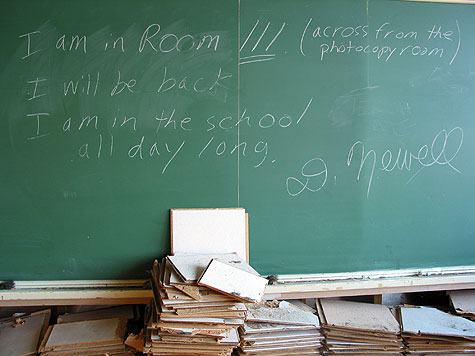 I am in Room 111. (across from the
photocopy room)
I will be back
I am in the school
all day long.
D. Newell